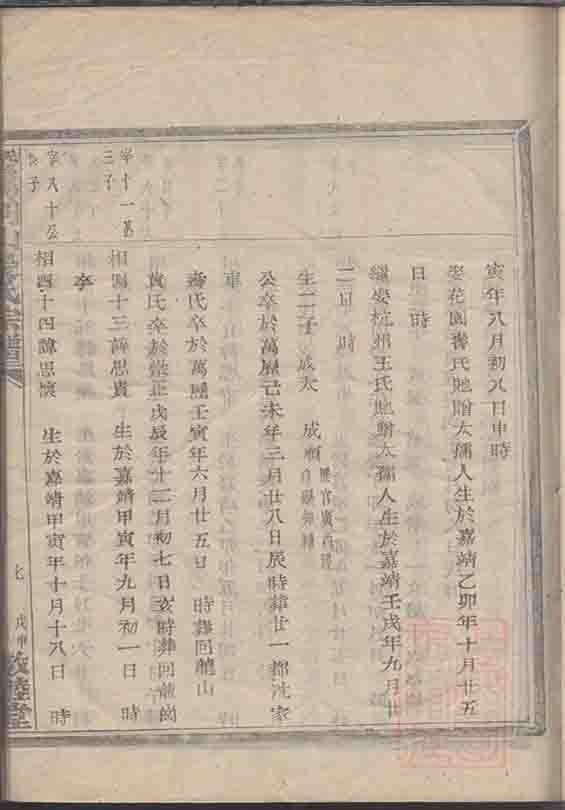 寅年八月初八日申時
娶花園蔣氏地贈太孺人生於嘉靖乙卯年十月廿五
日 時
繼娶杭州王氏地贈太孺人生於嘉靖壬戌年九月廿
二日 時
生二子 成大 成
公卒於萬曆己未年三月廿八日辰時葬廿一都沈家
氏卒於萬曆壬寅年六月廿五日 時葬回龍山
氏卒於崇正戊辰年十二月初七日亥時葬回龍崗
三子
相四十三諱思貴 生於嘉靖甲寅年九月初一日 時
字八十公
子
相四十四諱思懷 生於嘉靖甲寅年十月十八日 時
氏宗譜
七
戊申
敦睦堂